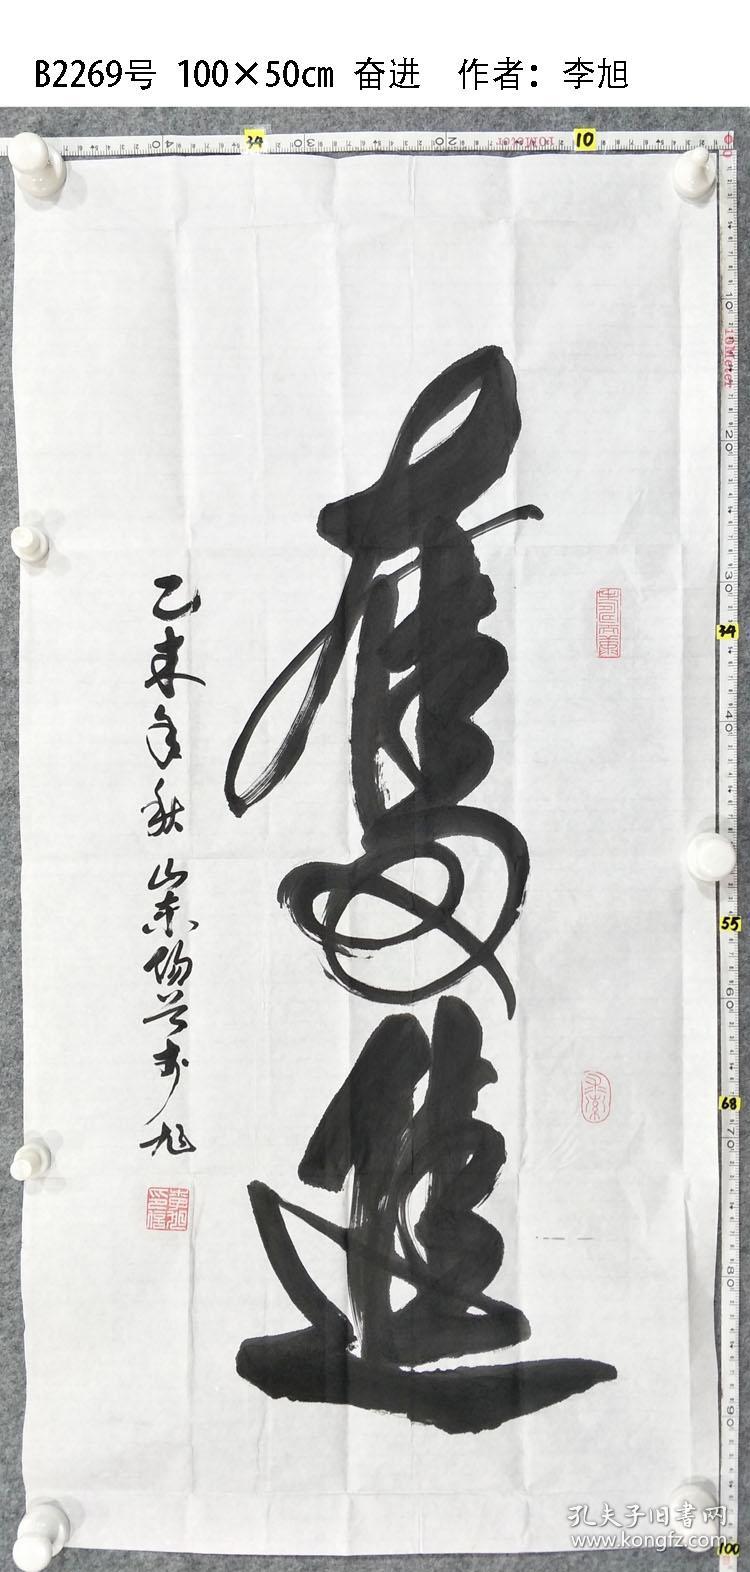 B2269号 100×50cm 奋进 作者：李旭
奮進
乙未年秋山東陽谷李旭
孔夫子旧书网
www.kongfz.com